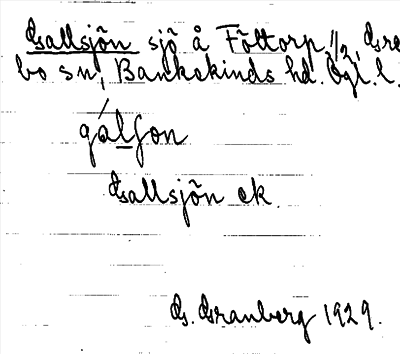 Gallsjön sjö å Föttorp 1/2, Gre
bo sn, Bankekinds hd. Ögl. l.
gálʃon
Gallsjön ek.
G. Granberg 1929.